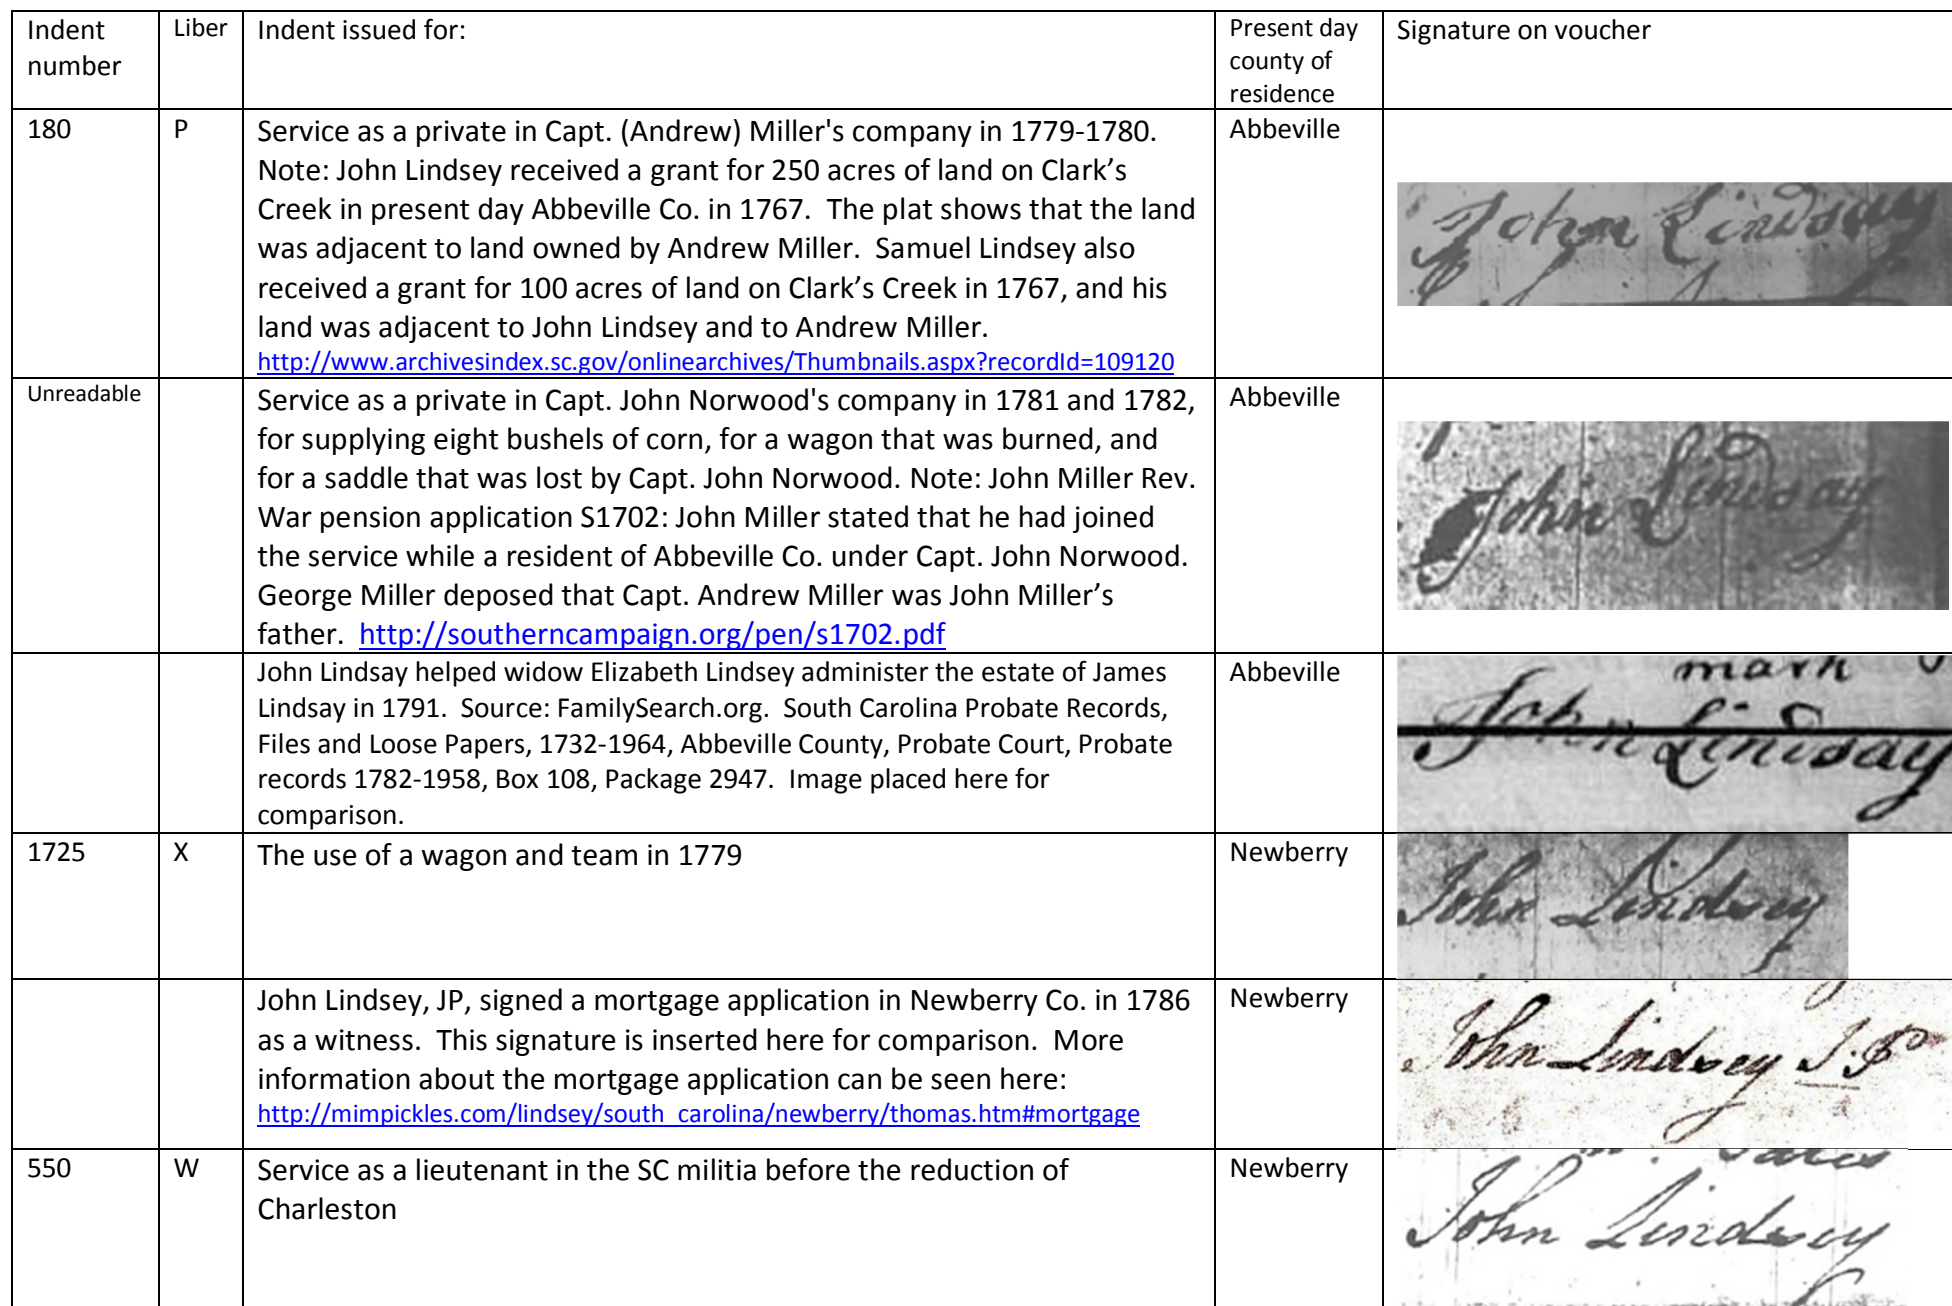 Indent number
Liber
Indent issued for:
Present day county of residence
Signature on voucher
180
P
Service as a private in Capt. (Andrew) Miller's company in 1779-1780.
Note: John Lindsey received a grant for 250 acres of land on Clark’s
Creek in present day Abbeville Co. in 1767.  The plat shows that the land
was adjacent to land owned by Andrew Miller.  Samuel Lindsey also
received a grant for 100 acres of land on Clark’s Creek in 1767, and his
land was adjacent to John Lindsey and to Andrew Miller.
http://www.archivesindex.sc.gov/onlinearchives/Thumbnails.aspx?recordId=109120
Abbeville
John Lindsay
Unreadable
Service as a private in Capt. John Norwood's company in 1781 and 1782,
for supplying eight bushels of corn, for a wagon that was burned, and
for a saddle that was lost by Capt. John Norwood. Note: John Miller Rev.
War pension application S1702: John Miller stated that he had joined
the service while a resident of Abbeville Co. under Capt. John Norwood.
George Miller deposed that Capt. Andrew Miller was John Miller’s
father.  http://southerncampaign.org/pen/s1702.pdf
Abbeville
John Lindsay
John Lindsay helped widow Elizabeth Lindsey administer the estate of James
Lindsay in 1791.  Source: FamilySearch.org.  South Carolina Probate Records,
Files and Loose Papers, 1732-1964, Abbeville County, Probate Court, Probate
records 1782-1958, Box 108, Package 2947.  Image placed here for
comparison.
Abbeville
mark
John Lindsay
1725
X
The use of a wagon and team in 1779
Newberry
John Lindsey
John Lindsey, JP, signed a mortgage application in Newberry Co. in 1786
as a witness.  This signature is inserted here for comparison.  More
information about the mortgage application can be seen here:
http://mimpickles.com/lindsey/south_carolina/newberry/thomas.htm#mortgage
Newberry
John Lindsey J.P
550
W
Service as a lieutenant in the SC militia before the reduction of
Charleston
Newberry
John Lindsey